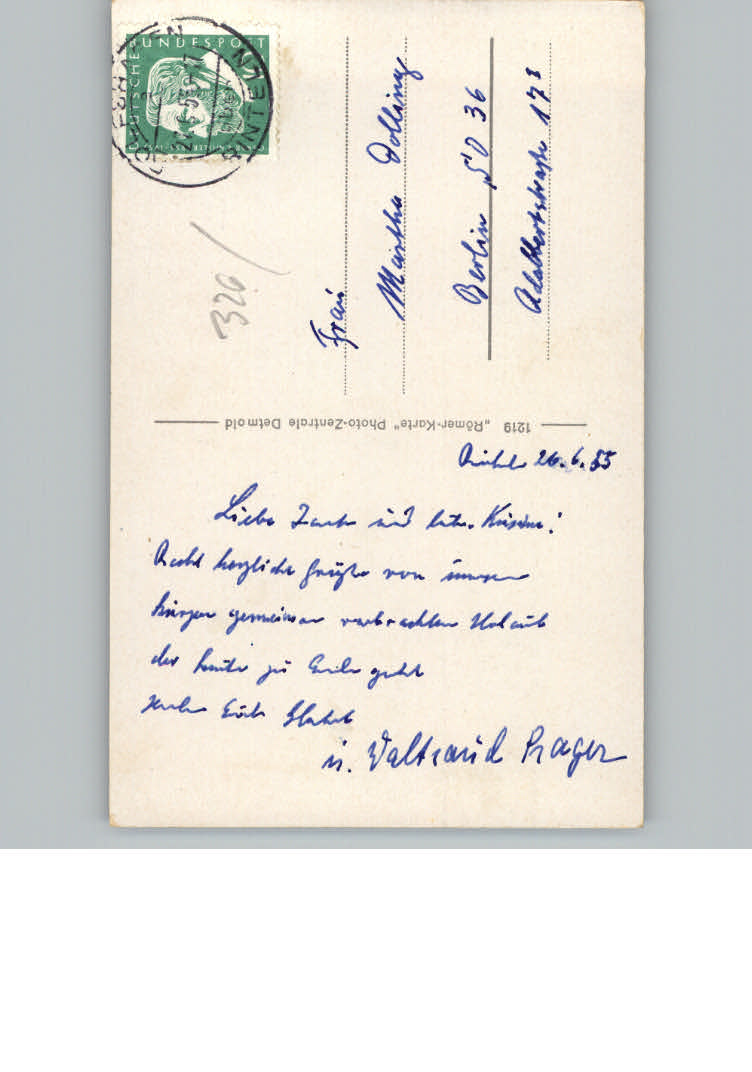 DEUTSCHE BUNDESPOST
320
Frau
Martha Dolling
Berlin SO 36
Adalbertstraße 173
1219 „Römer-Karte“ Photo-Zentrale Detmold
26.6.55
Liebe Tante und
Recht herzliche Grüße von unseren
kurzen gemeinsam verbrachten Urlaub
der heute zu Ende geht
Euch
u. Waltraud Prager